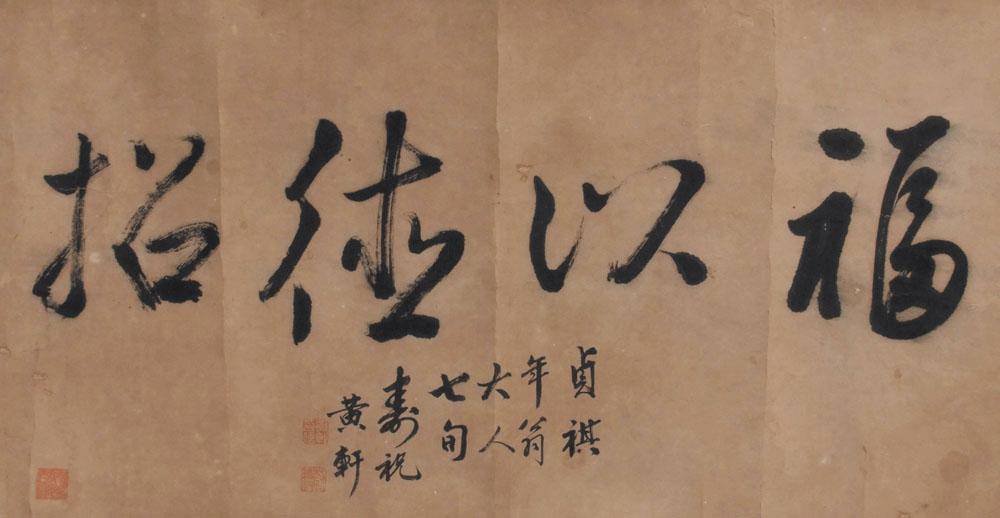 福以德招
貞祺
年翁
大人
七旬
壽祝
黃軒